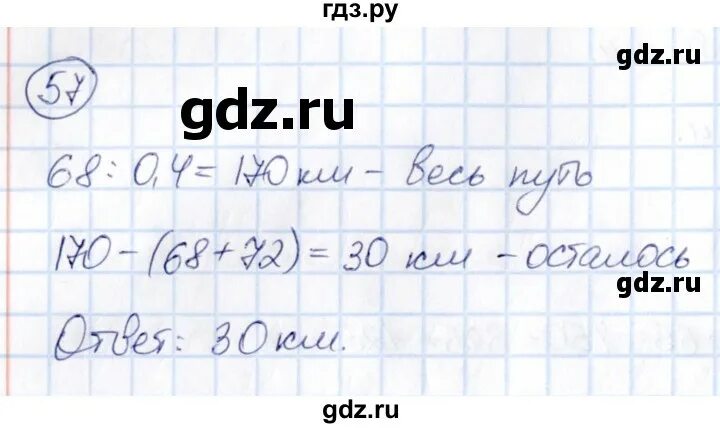 гдз.ру
gdz.ru
57
gdz.ru
68 : 0,4 = 170 км - весь путь
170 - (68 + 72) = 30 км - осталось
gdz.ru
Ответ: 30 км.
gdz.ru